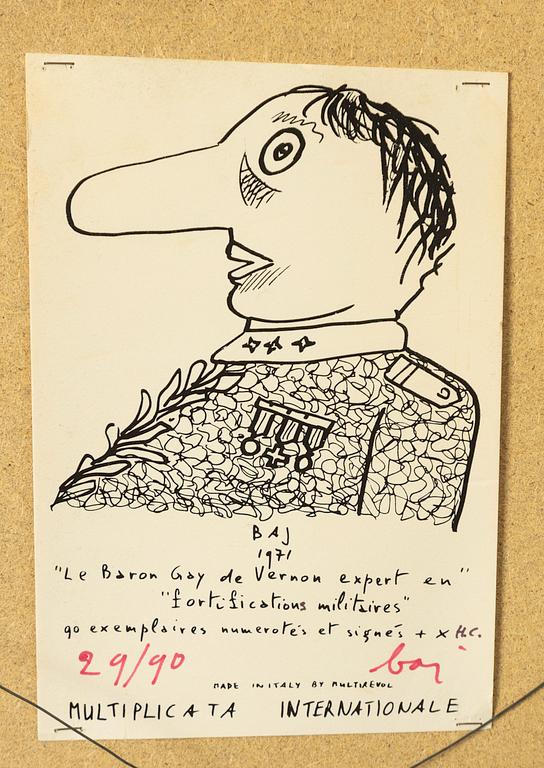 BAJ
1971
"Le Baron Gay de Vernon expert en"
"fortifications militaires"
90 exemplaires numerotés et signés + X H.C.
29/90 baj
MADE IN ITALY BY MULTIREVOL
MULTIPLICATA INTERNATIONALE